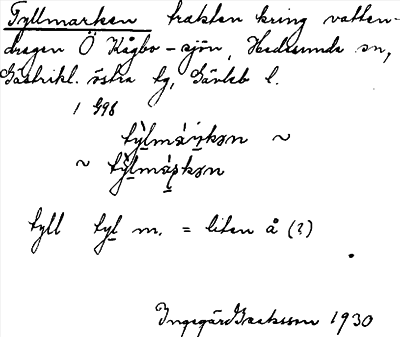 Tyllmarken trakten kring vatten-
dragen Ö Kågbo-sjön, Hedesunda sn,
Gästrikl. östra tg, Gävleb l.
1 G98
tỳlmárkən ~
~ tỳlmáʂkən
tyll tyl m. = liten å (?)
Ingegärd Isaksson 1930